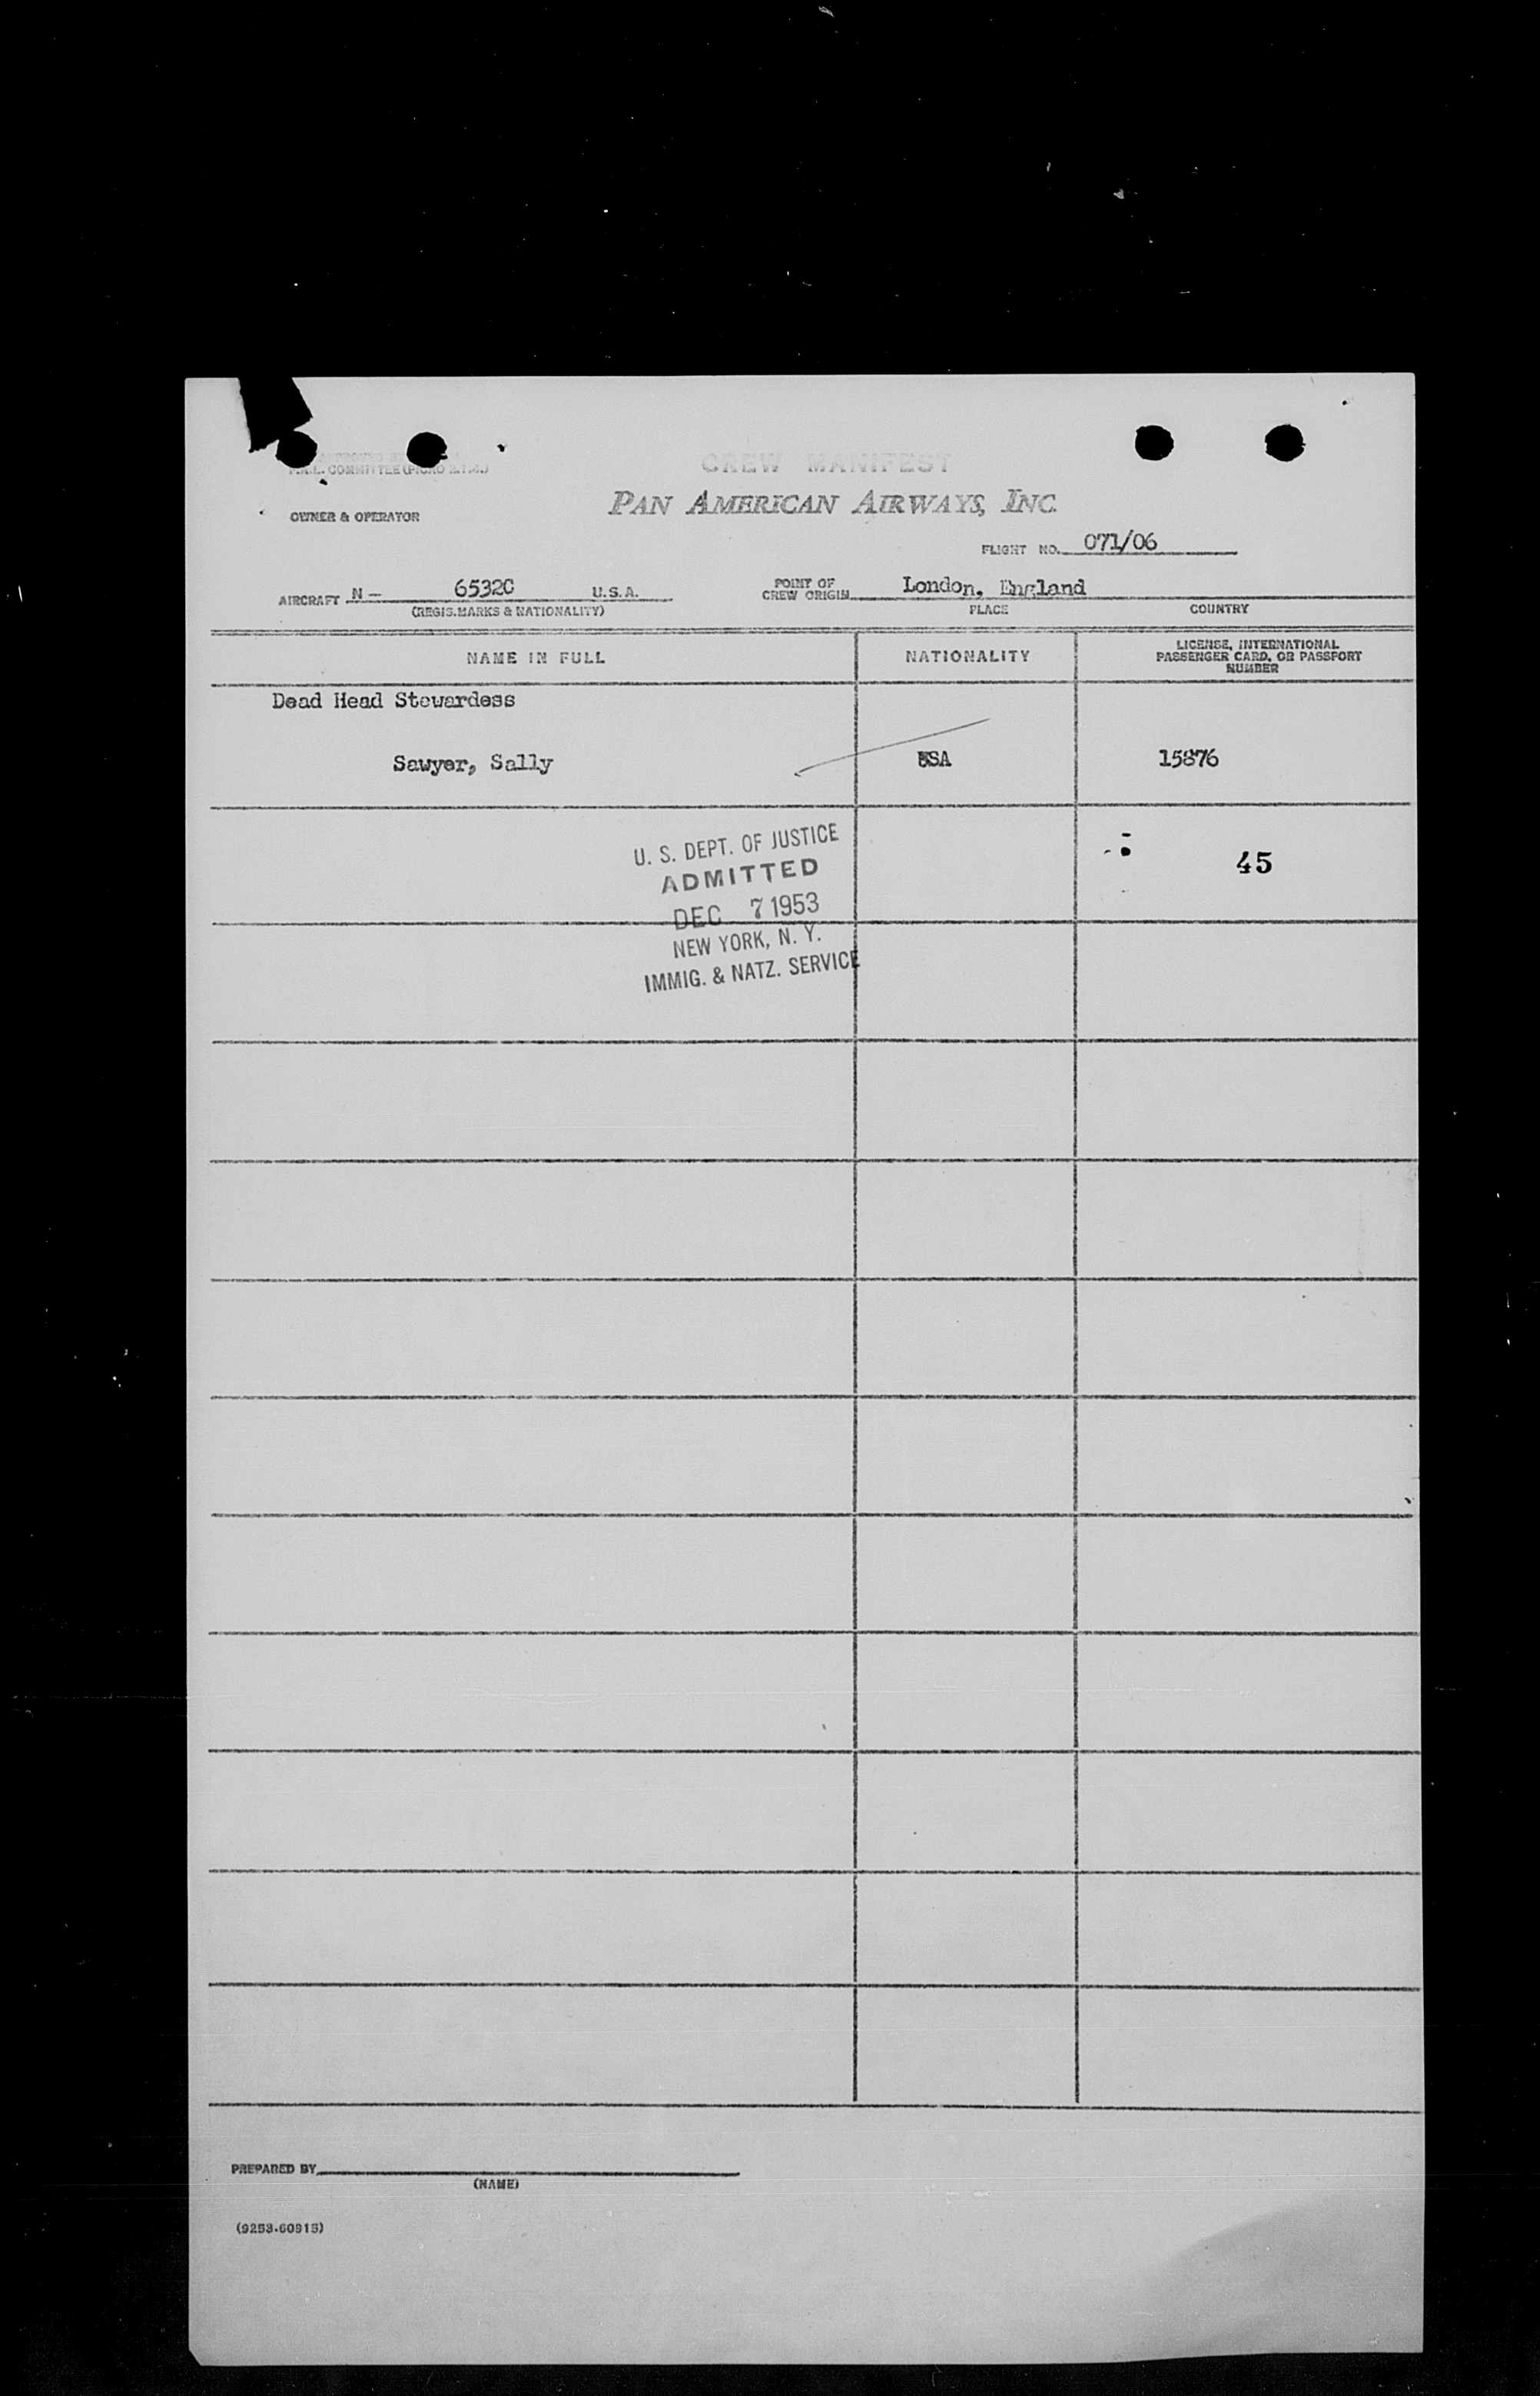 COMMITTEE
CREW MANIFEST
PAN AMERICAN AIRWAYS, INC.
OWNER & OPERATOR
FLIGHT NO. 071/06
AIRCRAFT N- 6532C U.S.A. POINT OF CREW ORIGIN London, England
(REGIS. MARKS & NATIONALITY) PLACE COUNTRY
NAME IN FULL NATIONALITY LICENSE, INTERNATIONAL
PASSENGER CARD, OR PASSPORT
NUMBER
Dead Head Stewardess
Sawyer, Sally USA 15876
U. S. DEPT. OF JUSTICE
ADMITTED
DEC 7 1953
NEW YORK, N. Y.
IMMIG. & NATZ. SERVICE
45
PREPARED BY
(NAME)
(9253-60915)